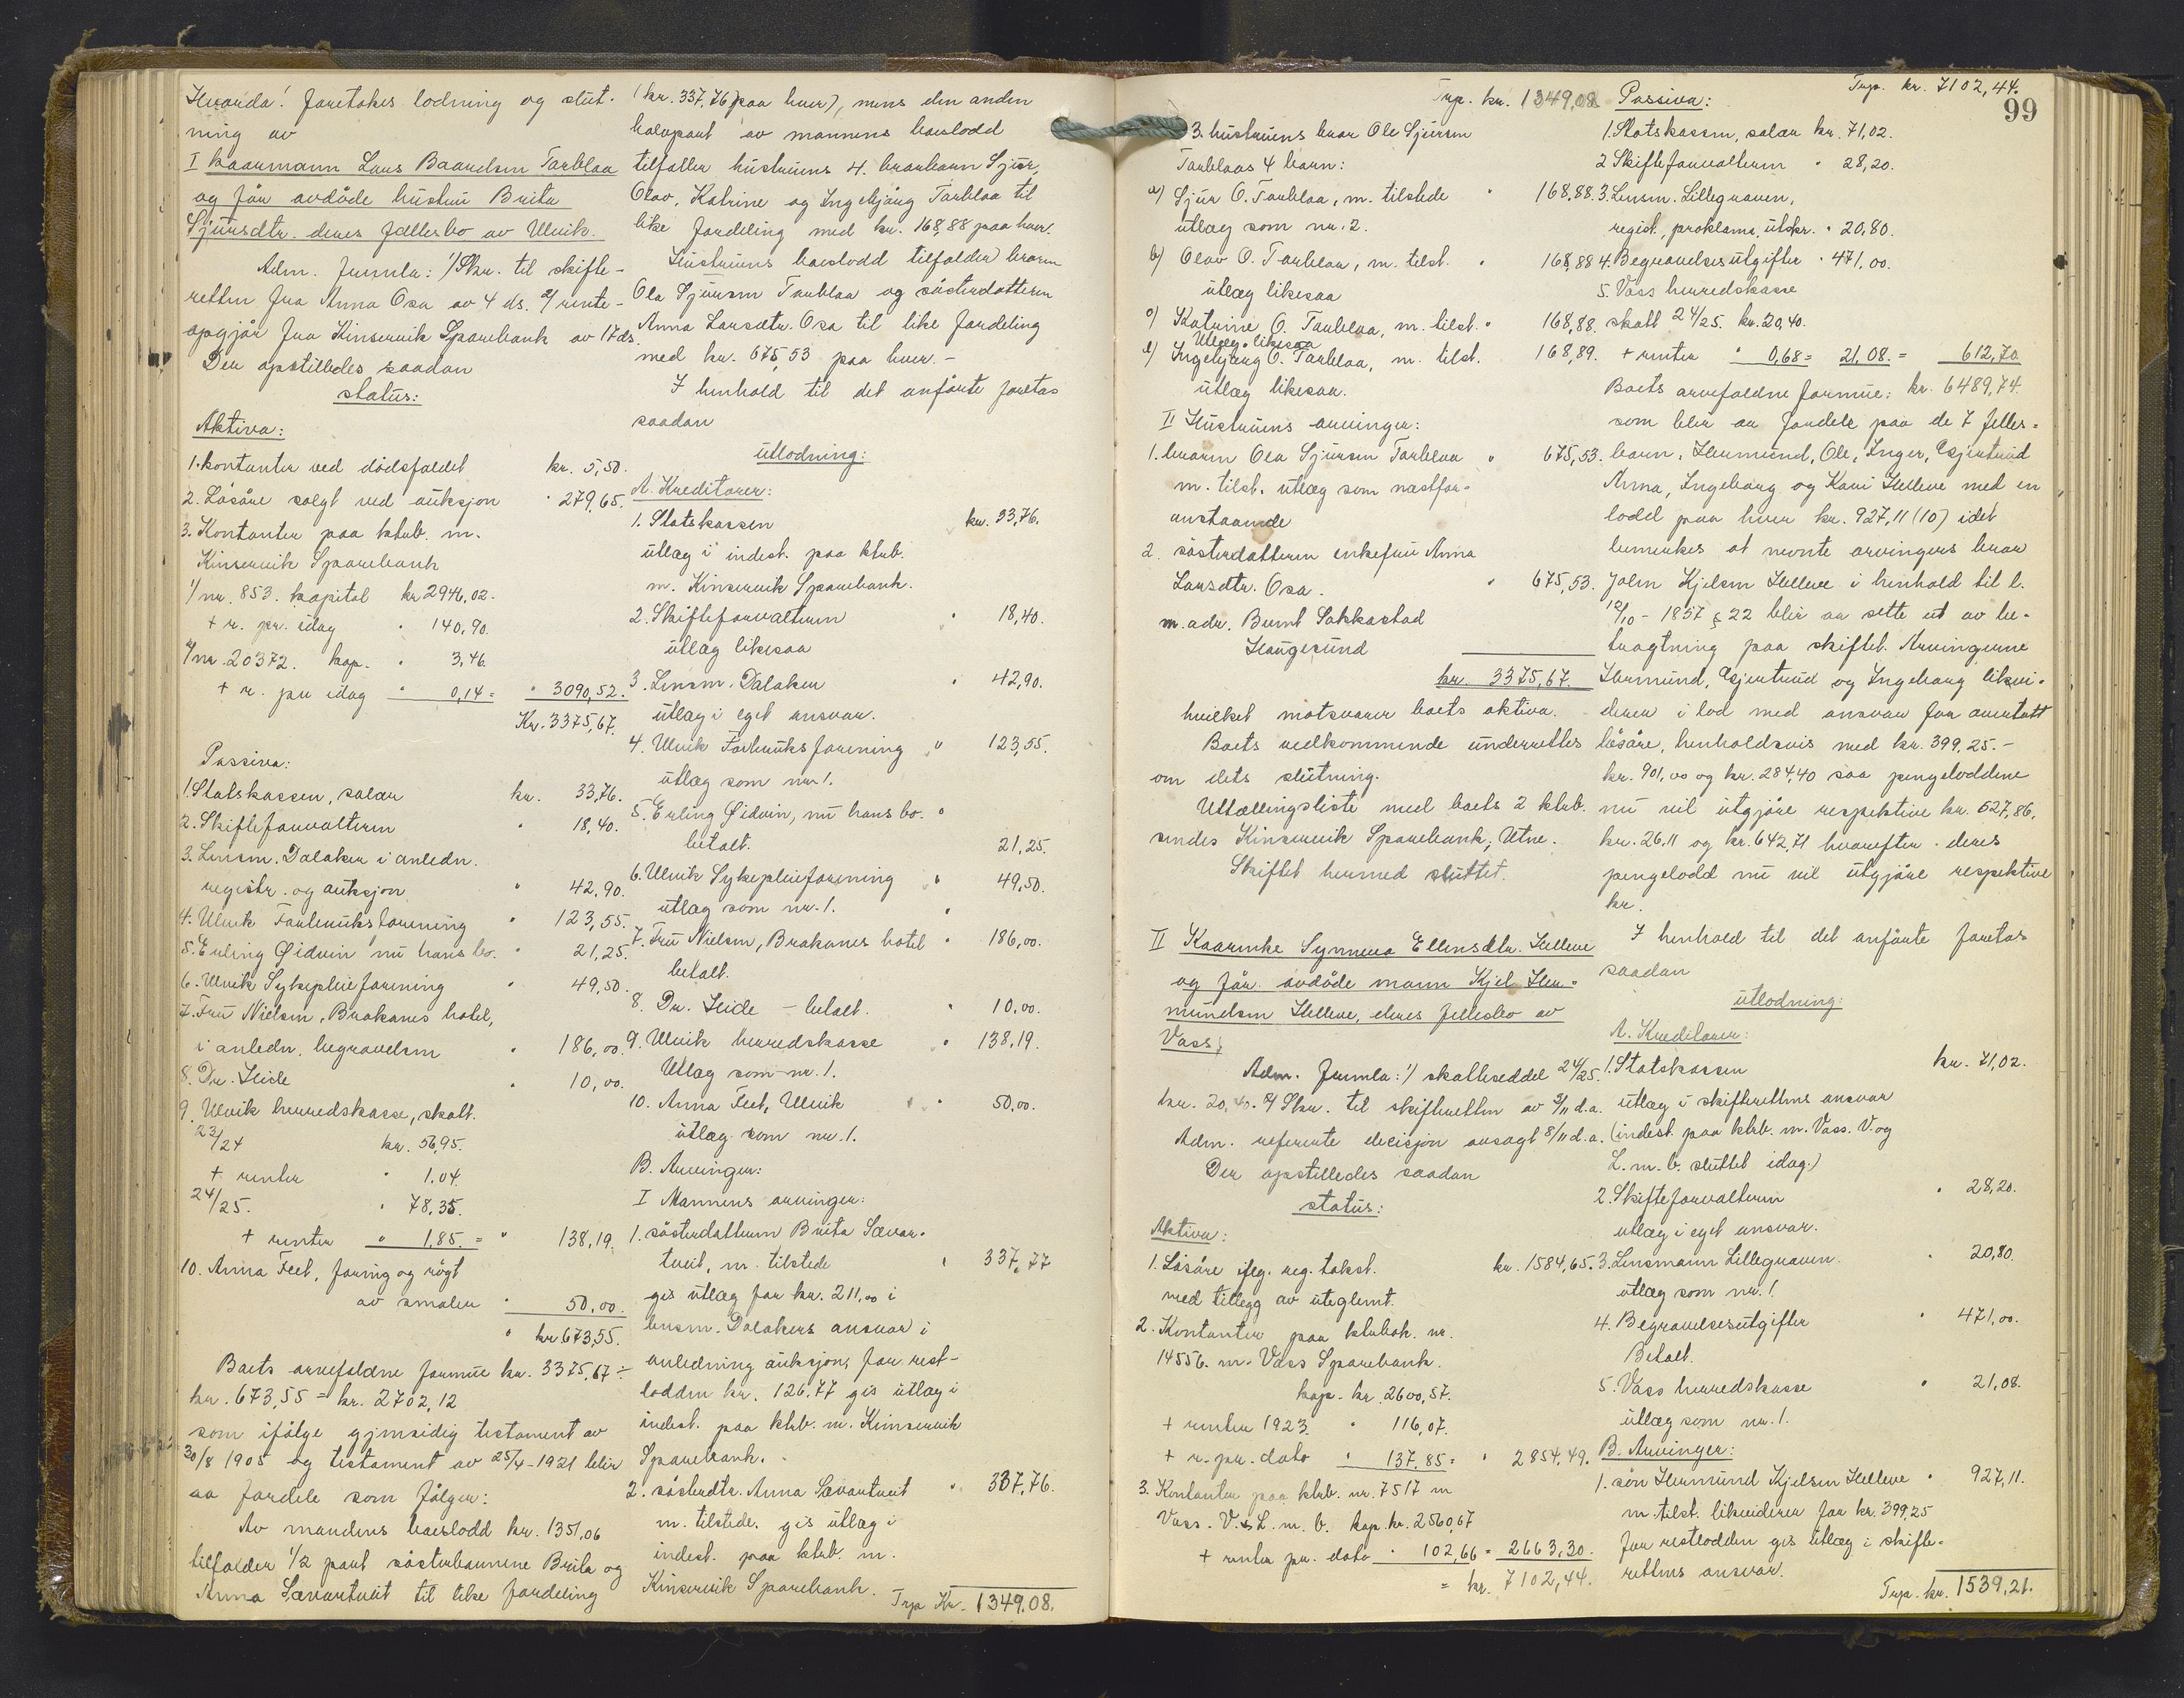 Hvorda! foretokes lodning og slut-
ning av
I kaarmann Lars Baardsen Tarblaa
og før avdøde hustru Brita
Sjursdtr. deres fellesbo av Ulvik.
Adm. fremla: 1/ Skr. til skifte-
retten fra Anna Osa av 4 ds. 2/ rente-
opgjør fra Kinservik Sparebank av 17 ds.
Der opstilledes saadan
status:
Aktiva:
1. kontanter ved dødsfaldet kr. 5,50.
2. Løsøre solgt ved auksjon " 279,65.
3. Kontanter paa ktrb. m.
Kinservik Sparebank
1/ nr. 853. kapital kr 2946,02.
+ r. pr. idag " 140,90.
2/ nr. 20372. kap. " 3,46.
+ r. pr idag " 0,14 = " 3090,52.
Kr. 3375,67.
Passiva:
1. Statskassen, salær kr. 33,76.
2. Skifteforvalteren " 18,40.
3. Lensm. Dalaker i anledn.
registr. og auksjon " 42,90.
4. Ulvik Forbruksforening " 123,55.
5. Erling Øidvin nu hans bo. " 21,25.
6. Ulvik Sykepleieforening " 49,50.
7. Fru Nielsen, Brakanes hotel,
i anledn. begravelsen " 186,00.
8. Dr. Heide " 10,00.
9. Ulvik herredskasse, skatt.
23/24 kr. 56,95.
+ renter " 1,04.
24/25. " 78,35.
+ renter " 1,85. = " 138,19.
10. Anna Feet, foring og røgt
av smaler " 50,00.
" kr 673,55.
Boets arvefaldne formue kr. 3375,67 ÷
kr. 673,55 = kr. 2702,12
som ifølge gjensidig testament av
30/8 1905 og testament av 25/4-1921 blir
aa fordele som følger:
Av mandens boeslodd kr. 1351,06
tilfalder 1/2 part søsterbarnene Brita og
Anna Sævartveit til like fordeling
(kr. 337,76) paa hver), mens den anden
halvpart av mannens boeslodd
tilfaller hustruens 4. brorbarn Sjur,
Olav, Katrine og Ingebjørg Tarblaa til
like fordeling med kr. 168,88 paa hver.
Hustruens boeslodd tilfalder broren
Ola Sjursen Tarblaa og søsterdatteren
Anna Larsdtr. Osa til like fordeling
med kr. 675,53 paa hver.-
I henhold til det anførte foretas
saadan
utlodning:
A. Kreditorer:
1. Statskassen kr. 33,76.
utlæg i indest. paa ktrb.
m. Kinservik Sparebank.
2. Skifteforvalteren " 18,40.
utlæg likesaa
3. Lensm. Dalaker " 42,90.
utlæg i eget ansvar.
4. Ulvik Forbruksforening " 123,55.
utlæg som nr. 1.
5. Erling Øidvin, nu hans bo. "
betalt. 21,25.
6. Ulvik Sykepleieforening " 49,50.
utlæg som nr. 1.
7. Fru Nielsen, Brakanes hotel " 186,00.
betalt.
8. Dr. Heide - betalt. " 10,00.
9. Ulvik herredskasse " 138,19.
Utlæg som nr. 1.
10. Anna Feet, Ulvik " 50,00.
utlæg som nr. 1.
B. Arvinger:
I Mannens arvinger:
1. søsterdatteren Brita Sævar-
tveit, m. tilstede " 337,77
gis utlæg for kr. 211,00 i
lensm. Dalakers ansvar i
anledning auksjon, for rest-
lodden kr. 126,77 gis utlæg i
indest. paa ktrb. m. Kinservik
Sparebank.
2. søsterdtr. Anna Sævartveit " 337,76.
m. tilstede, gis utlæg i
indest. paa ktrb. m.
Kinservik Sparebank.
Trp Kr. 1349,08.
99
Trp. kr. 1349,08
3. hustruens bror Ole Sjursen
Tarblaas 4 barn:
a) Sjur O. Tarblaa, m. tilstede " 168,88.
utlæg som nr. 2.
b) Olav O. Tarblaa, m. tilst. " 168,88
utlæg likesaa
c) Katrine O. Tarblaa, m. tilst. " 168,88.
Utlæg likesaa
d) Ingebjørg O. Tarblaa, m. tilst. 168,89.
utlæg likesaa.
II Hustruens arvinger:
1. broren Ola Sjursen Tarblaa " 675,53.
m. tilst. utlæg som næstfor-
anstaaende
2. søsterdatteren enkefru Anna
Larsdtr. Osa. " 675,53.
m. adr. Bernt Sakkastad
Haugesund
kr. 3375,67.
hvilket motsvarer boets aktiva.
Boets vedkommende underrettes
om dets slutning.
Utlællingsliste med boets 2 ktrb.
sendes Kinservik Sparebank, Utne.
Skiftet hermed sluttet.
II Kaarenke Synneva Ellensdtr. Helleve
og før. avdøde mann Kjel Her-
mundsen Helleve, deres fellesbo av
Vass,
Adm. fremla: 1/ skatteseddel 24/25.
kr. 20,40. 2/ Skr. til skifteretten av 3/11 d.a.
Adm. refererte decisjon avsagt 8/11 d.a.
Der opstilledes saadan
status:
Aktiva:
1. Løsøre iflg. reg. takst. kr. 1584,65.
med tillegg av uteglemt.
2. Kontanter paa ktrbok. nr.
14556. m. Vass Sparebank.
kap. kr. 2600,57.
+ renter 1923. " 116,07.
+ r. pr. dato " 137,85 = " 2854,49.
3. Kontanter paa ktrb. nr. 7517 m
Vass. V. & L. m. b. kap. kr. 2560,67
+ renter pr. dato " 102,66 = 2663,30.
= kr. 7102,44.
Trp. kr. 7102,44.
Passiva:
1. Statskassen, salær kr. 71,02.
2 Skifteforvalteren " 28,20.
3. Lensm. Lillegraven,
regist., proklama, utskr. " 20,80.
4. Begravelsesutgifter " 471,00.
5. Vass herredskasse
skatt 24/25. kr. 20,40.
+ renter " 0,68 = 21,08. = 612,70
Boets arvefaldne formue: kr. 6489,74.
som blir aa fordele paa de 7 felles-
barn, Hermund, Ole, Inger, Gjertrud
Anna, Ingeborg og Kari Helleve med en
lodd paa hver kr. 927,11 (10) idet
bemerkes at nevnte arvingers bror
John Kjelsen Helleve i henhold til l.
12/10 - 1857 § 22 blir aa sette ut av be-
tragtning paa skiftet. Arvingerne
Hermund, Gjertrud og Ingeborg likvi-
derer i lod med ansvar for overtatt
løsøre, henholdsvis med kr. 399,25.-
kr. 901,00 og kr. 284,40 saa pengeloddene
nu vil utgjøre respektive kr. 527,86,
kr. 26,11 og kr. 642,71 hvorefter deres
pengelodd nu vil utgjøre respektive
kr.
I henhold til det anførte foretas
saadan
utlodning:
A. Kreditorer:
1. Statskassen kr. 71,02.
utlæg i skifterettens ansvar
(indest. paa ktrb. m. Vass. V. og
L. m. b. sluttet idag.)
2. Skifteforvalteren " 28,20.
utlæg i eget ansvar.
3. Lensmann Lillegraven. " 20,80
utlæg som nr. 1.
4. Begravelsesutgifter " 471,00.
Betalt.
5. Vass herredskasse " 21,08.
utlæg som nr. 1.
B. Arvinger:
1. søn Hermund Kjelsen Helleve " 927,11.
m. tilst. likviderer for kr. 399,25
for restlodden gis utlæg i skifte-
rettens ansvar.
Trp. kr. 1539,21.